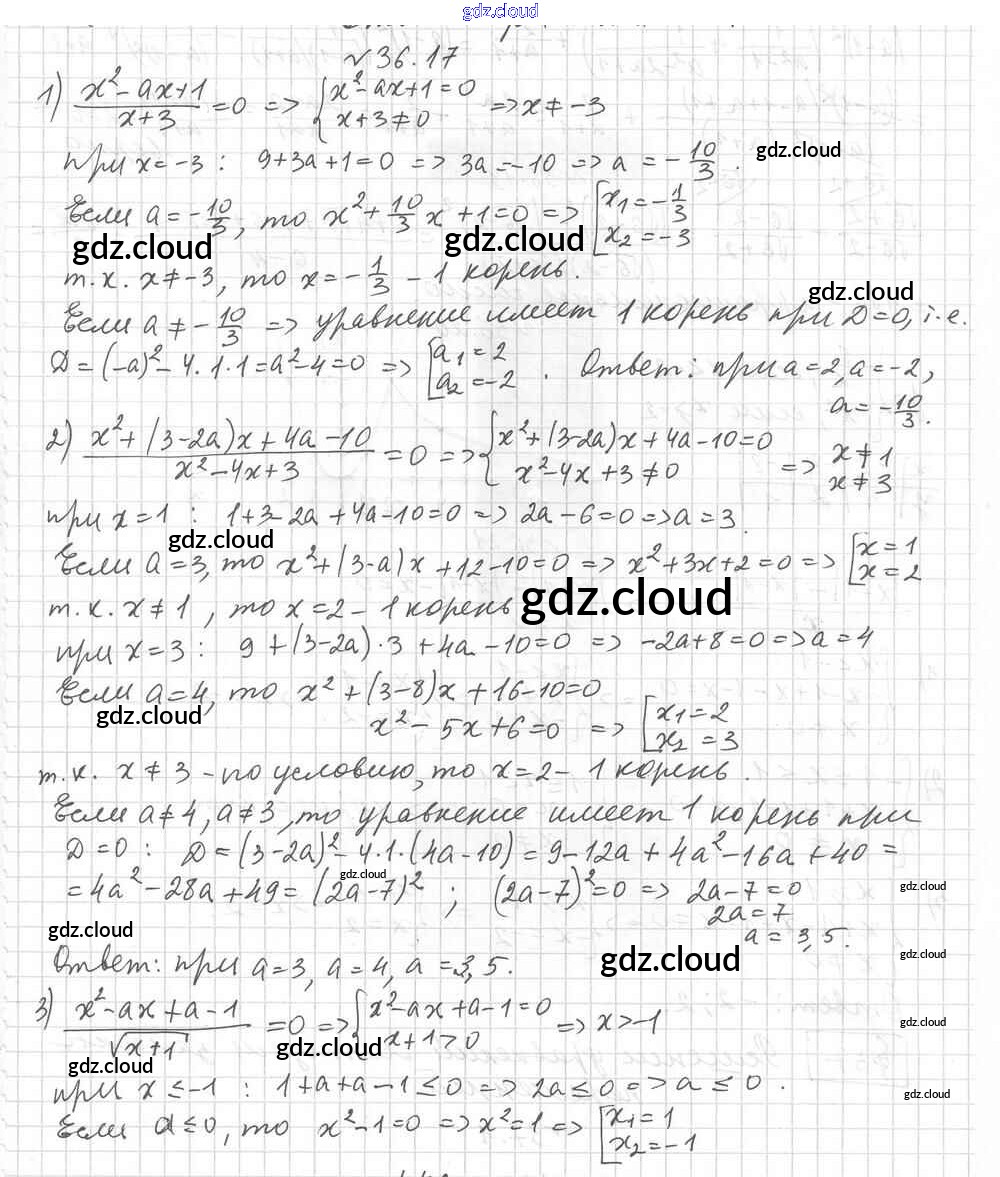 gdz.cloud
№ 36.17
1) (x² - ax + 1)/(x+3) = 0 => { x² - ax + 1 = 0 ; x+3 ≠ 0 => x ≠ -3
при x = -3 : 9+3a+1=0 => 3a = -10 => a = -10/3 . gdz.cloud
Если a = -10/3, то x² + 10/3 x + 1 = 0 => [ x₁ = -1/3 ; x₂ = -3
gdz.cloud gdz.cloud
т.к. x ≠ -3, то x = -1/3 - 1 корень.
gdz.cloud
Если a ≠ -10/3 => уравнение имеет 1 корень при D=0, i.e.
D = (-a)² - 4·1·1 = a² - 4 = 0 => [ a₁ = 2 ; a₂ = -2 . Ответ: при a=2, a=-2,
a = -10/3.
2) (x² + (3-2a)x + 4a - 10)/(x² - 4x + 3) = 0 => { x² + (3-2a)x + 4a - 10 = 0 ; x² - 4x + 3 ≠ 0 => x ≠ 1 x ≠ 3
при x = 1 : 1+3-2a+4a-10=0 => 2a-6=0 => a=3.
gdz.cloud
Если a=3, то x² + (3-a)x + 12-10=0 => x²+3x+2=0 => [ x=1 ; x=2
т.к. x ≠ 1, то x=2 - 1 корень gdz.cloud
при x=3 : 9 + (3-2a)·3 + 4a - 10=0 => -2a+8=0 => a=4
Если a=4, то x² + (3-8)x + 16-10=0
gdz.cloud
x² - 5x + 6 = 0 => [ x₁=2 ; x₂=3
т.к. x ≠ 3 - по условию, то x=2 - 1 корень.
Если a≠4, a≠3, то уравнение имеет 1 корень при
D=0 : D = (3-2a)² - 4·1·(4a-10) = 9-12a+4a²-16a+40 =
gdz.cloud
= 4a² - 28a + 49 = (2a-7)² ; (2a-7)²=0 => 2a-7=0 gdz.cloud
2a=7
gdz.cloud a = 3,5.
Ответ: при a=3, a=4, a=3,5. gdz.cloud gdz.cloud
3) (x² - ax + a - 1)/√(x+1) = 0 => { x² - ax + a - 1 = 0 ; x+1 > 0 => x > -1 gdz.cloud
gdz.cloud gdz.cloud
при x ≤ -1 : 1+a+a-1 ≤ 0 => 2a ≤ 0 => a ≤ 0 . gdz.cloud
Если a ≤ 0, то x² - 1 = 0 => x² = 1 => [ x₁ = 1 ; x₂ = -1